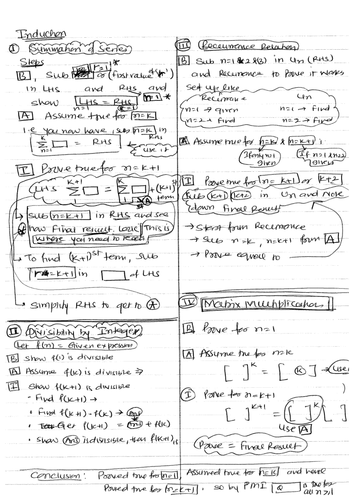 Induction
I Summation of Series
Steps
B, Sub r=1 or (first value of r)
in LHS and RHS and
show LHS = RHS n=1
A Assume true for n=k
i.e you now have, sub n=k in
= RHS use it
I Prove true for n=k+1
LHS = + (k+1)th term A
→ Sub n=k+1 in RHS and see
how Final result looks This is
where you need to reach
→ To find (k+1)st term, sub
r=k+1 in of LHS
→ Simplify RHS to get to A
II Divisibility by Integer
Let f(n) = Given expression
B show f(1) is divisible
A Assume f(k) is divisible ⇒
I Show f(k+1) is divisible
• Find f(k+1) →
• Find f(k+1) - f(k) → Ans
f(k+1) = Ans + f(k)
• show Ans is divisible, then f(k+1) is
III Recurrence Relation
B Sub n=1 & 2 in Un (RHS)
and Recurrence to Prove it works
Set up like
Recurrence Un
n=1 → given n=1 → find
n=2 → find n=2 → find
A Assume true for n=k & n=k+1
If n=1 given If n=1 n=2 given
I Prove true for n=k+1 or k+2
Sub k+1 k+2 in Un and note
down Final Result
→ Start from Recurrence
→ Sub n=k, n=k+1 from A
→ Prove equal to
IV Matrix Multiplication
B Prove for n=1
A Assume true for n=k
[ ]^k = [ k ] → use
I Prove for n=k+1
[ ]^k+1 = [ ]^k [ ]
use A
Prove = Final Result
Conclusion: Proved true for n=1, Assumed true for n=k and have
Proved true for n=k+1, so by PMI is true for all n≥1